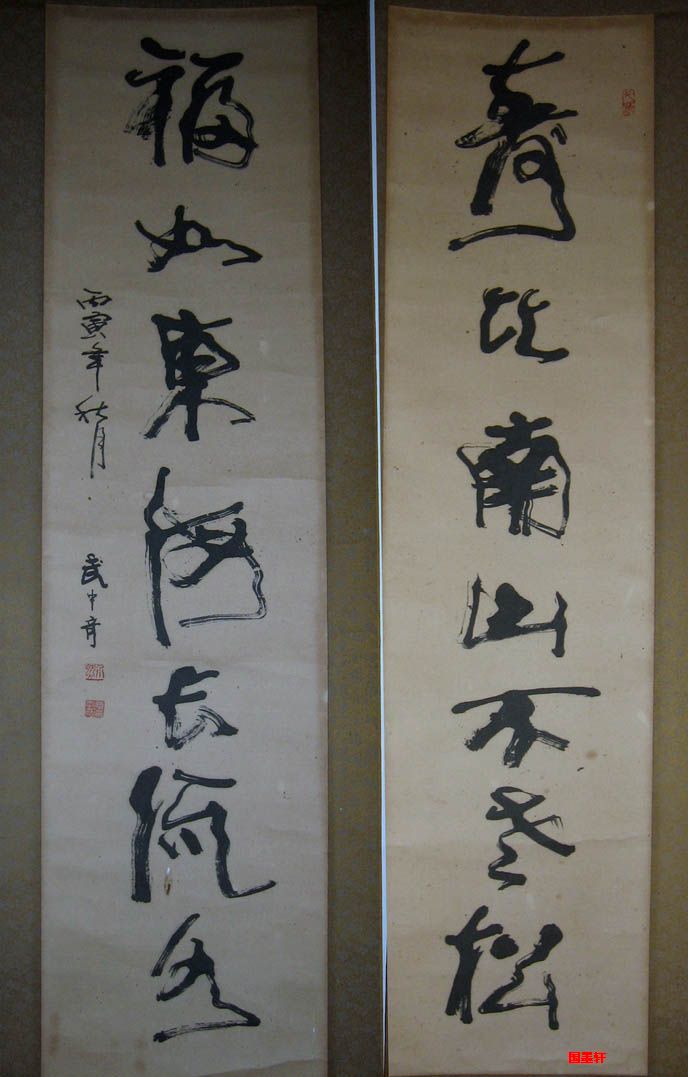 壽比南山不老松
福如東海長流水
丙寅年秋月
武中奇
国墨轩